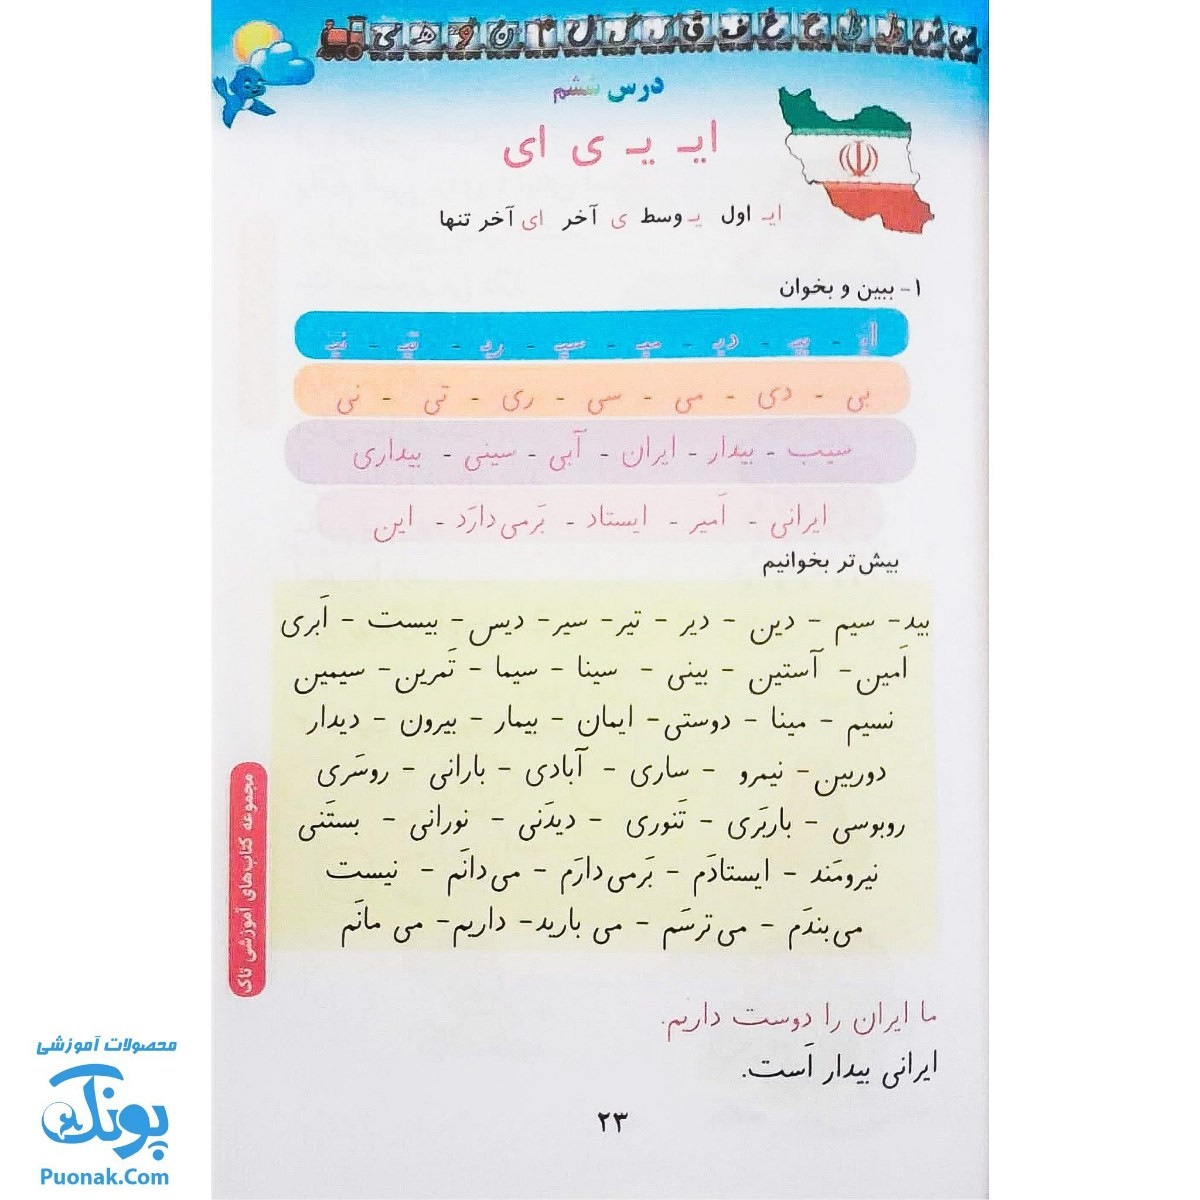 س ش ط ظ ع غ ف ق ک گ ل م ن و ه ی
درس ششم
ایـ یـ ی ای
ایـ اول یـ وسط ی آخر ای آخر تنها
۱- ببین و بخوان
ایـ - بیـ - دیـ - میـ - سیـ - ریـ - تیـ - نیـ
بی - دی - می - سی - ری - تی - نی
سیب - بیدار - ایران - آبی - سینی - بیداری
ایرانی - اَمیر - ایستاد - بَرمی‌دارَد - این
بیش‌تر بخوانیم
بید - سیم - دین - دیر - تیر - سیر - دیس - بیست - اَبری
اَمین - آستین - بینی - سینا - سیما - تَمرین - سیمین
نسیم - مینا - دوستی - ایمان - بیمار - بیرون - دیدار
دوربین - نیمرو - ساری - آبادی - بارانی - روسَری
روبوسی - باربَری - تَنوری - دیدَنی - نورانی - بستَنی
نیرومَند - ایستادَم - بَرمی‌دارَم - می‌دانَم - نیست
می‌بندَم - می‌ترسَم - می بارید - داریم - می مانَم
ما ایران را دوست داریم.
ایرانی بیدار اَست.
۲۳
مجموعه کتاب‌های آموزشی تاک
محصولات آموزشی
پونک
Puonak.Com